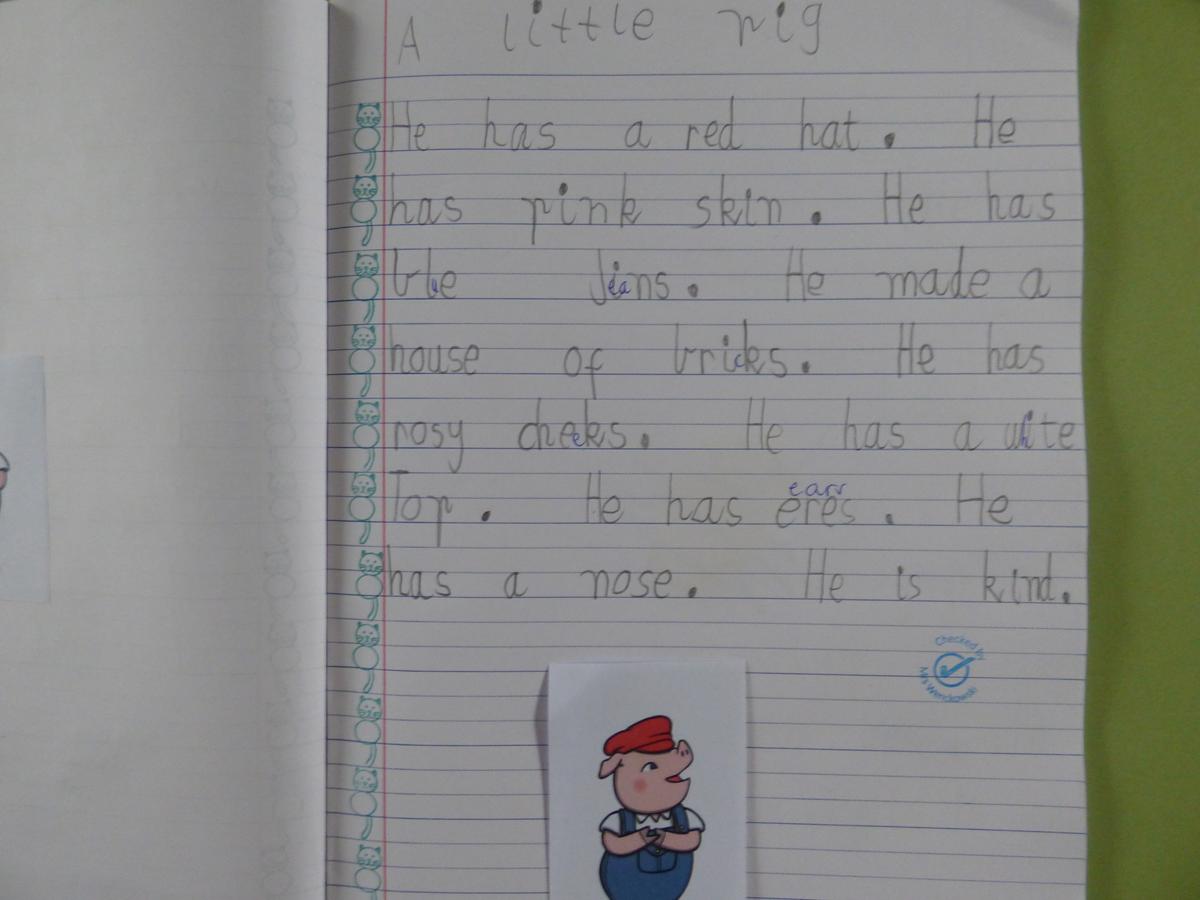 A little pig
He has a red hat. He
has pink skin. He has
blue jeans. He made a
house of bricks. He has
rosy cheeks. He has a white
Top. He has eres. He
ears
has a nose. He is kind.
Checked by
Mrs Wenckowski